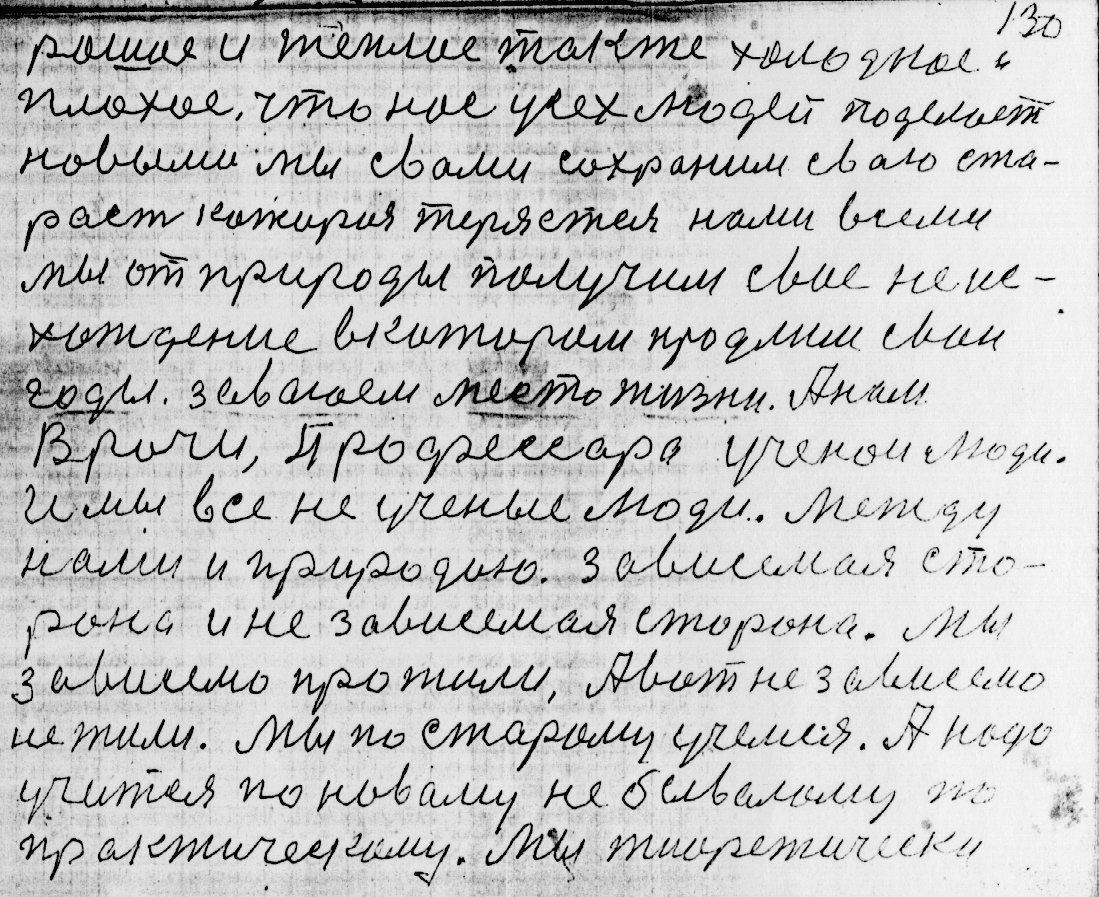 130
рошое и теплое также холодное и
плохое. что нас усех людей поделает
новыми мы свами сохраним сваю ста-
раст каторая теряется нами всеми
мы от природы получим свое не ис-
хождение вкатором продлим свои
годы. заваюем место жизни. Анам
Врачи, Профессара ученои люди.
И мы все не ученые люди. Между
нами и природаю. зависемая сто-
рона и не зависемая сторона. Мы
зависемо прожили, Авот не зависемо
не жили. Мы по старому учемся. А надо
учится по новаму не бывалому по
практическому. Мы тиоретически